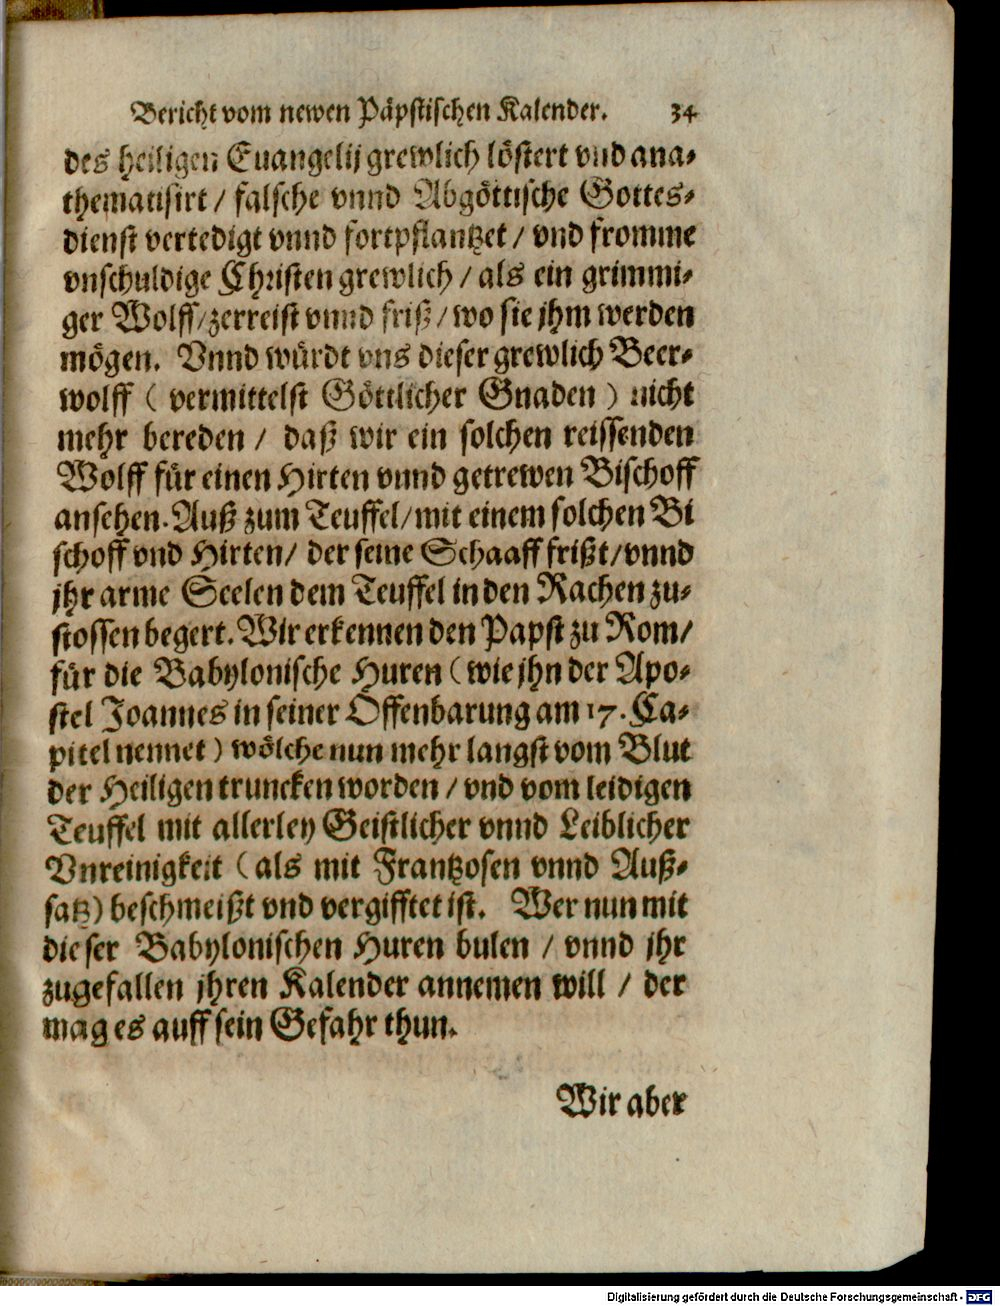 Bericht vom newen Päpstischen Kalender. 34
des heiligen Euangelij grewlich löstert vnd ana-
thematisirt / falsche vnnd Abgöttische Gottes-
dienst vertedigt vnnd fortpflantzet / vnd fromme
vnschuldige Christen grewlich / als ein grimmi-
ger Wolff / zerreist vnnd friß / wo sie jhm werden
mögen. Vnnd würdt vns dieser grewlich Beer-
wolff ( vermittelst Göttlicher Gnaden ) nicht
mehr bereden / daß wir ein solchen reissenden
Wolff für einen Hirten vnnd getrewen Bischoff
ansehen. Auß zum Teuffel / mit einem solchen Bi
schoff vnd Hirten / der seine Schaaff frißt / vnnd
jhr arme Seelen dem Teuffel in den Rachen zu-
stossen begert. Wir erkennen den Papst zu Rom /
für die Babylonische Huren ( wie jhn der Apo-
stel Joannes in seiner Offenbarung am 17. Ca-
pitel nennet ) wölche nun mehr langst vom Blut
der Heiligen truncken worden / vnd vom leidigen
Teuffel mit allerley Geistlicher vnnd Leiblicher
Vnreinigkeit ( als mit Frantzosen vnnd Auß-
satz ) beschmeißt vnd vergifftet ist. Wer nun mit
dieser Babylonischen Huren bulen / vnnd jhr
zugefallen jhren Kalender annemen will / der
mag es auff sein Gefahr thun.
Wir aber
Digitalisierung gefördert durch die Deutsche Forschungsgemeinschaft - DFG